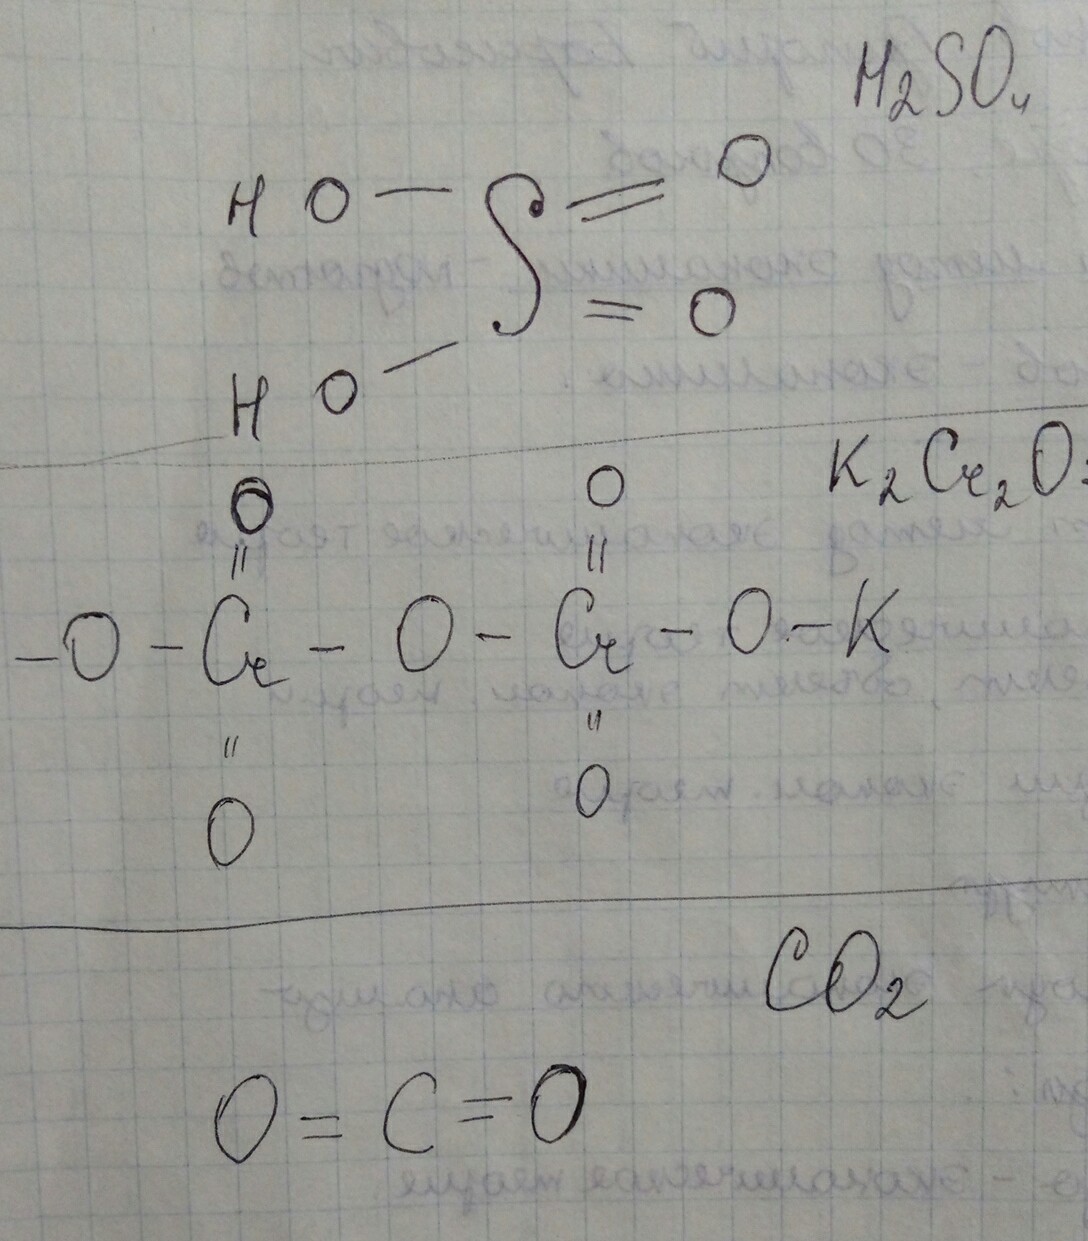 H₂SO₄
H O — S = O
= O
H O —
K₂Cr₂O
O O
|| ||
– O – Cr – O – Cr – O – K
|| ||
O O
CO₂
O = C = O